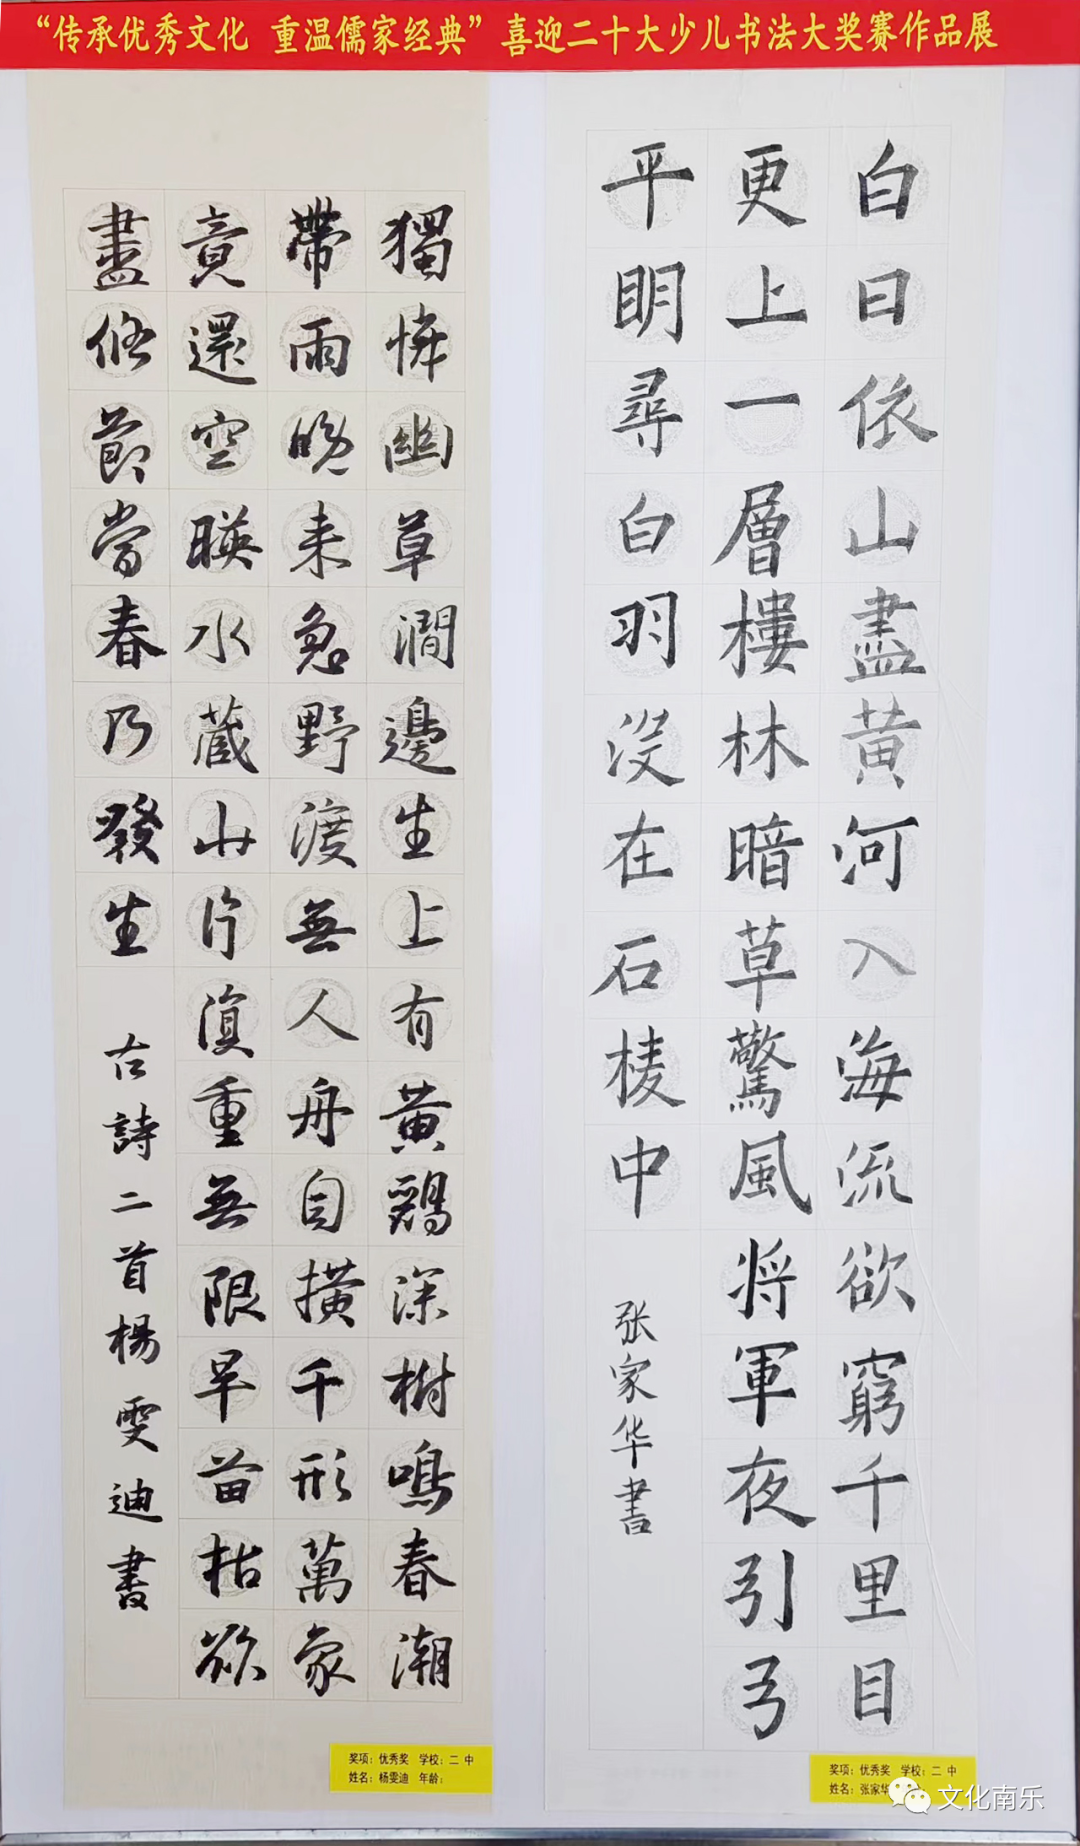 “传承优秀文化 重温儒家经典”喜迎二十大少儿书法大奖赛作品展
白日依山盡黄河入海流欲窮千里目
更上一層樓林暗草驚風将軍夜引弓
平明尋白羽没在石棱中
张家华書
獨憐幽草澗邊生上有黄鸝深樹鳴春潮
帶雨晚来急野渡無人舟自横千形萬象
竟還空暎水藏山片復重無限旱苗枯欲
盡悠節當春乃發生
古詩二首楊雯迪書
奖项：优秀奖 学校：二 中
姓名：杨雯迪 年龄：
奖项：优秀奖 学校：二 中
姓名：张家华
文化南乐